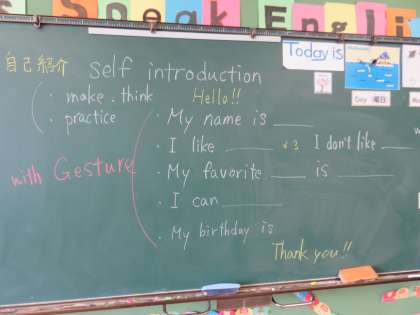 Speak Engli
Today is
Day (曜日)
自己紹介 self introduction
・make・think
・practice
with Gesture
Hello!!
・My name is ___
・I like ___ ×3 I don't like ___
・My favorite ___ is ___
・I can ___
・My birthday is
Thank you!!